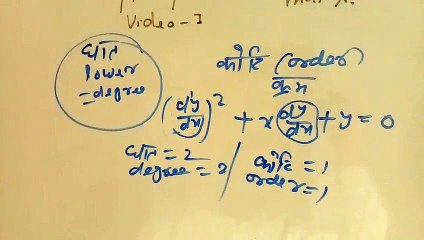 Video-1
घात
Power
=degree
कोटि (order)
क्रम
(dy/dx)² + x dy/dx + y = 0
घात = 2
degree = 2
कोटि = 1
order = 1